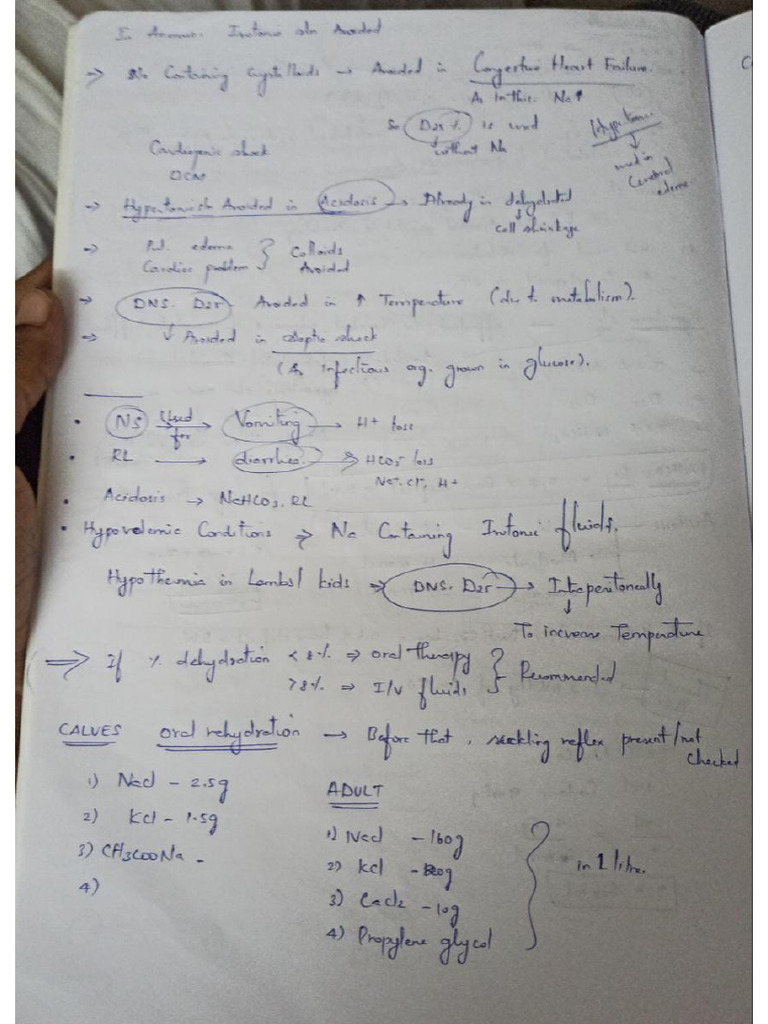 In Isotonic sln Avoided
→ Na Containing crystalloids → Avoided in Congestive Heart Failure.
As in this Na↑
So D25% is used
without Na
Hypertonic
used in
Cerebral
edema
Cardiogenic shock
DCM
→ Hypertonic sln Avoided in Acidosis → Already in dehydrated
cell shrinkage
→ Pul. edema } Colloids
Cardiac problem } Avoided
→ DNS. D25 Avoided in ↑ Temperature (du t. metabolism).
→ ↓ Avoided in septic shock
(As infectious org. grown in glucose).
• NS Used for → Vomiting → H+ loss
• RL → diarrhea → HCO3- loss
Na+. Cl-. H+
• Acidosis → NaHCO3. RL
• Hypovolemic Conditions → Na Containing Isotonic fluids.
Hypothermia in Lambs/ kids → DNS. D25 → Intraperitoneally
↓
To increase Temperature
⇒ If % dehydration < 8% ⇒ oral therapy } Recommended
>8% ⇒ I/V fluids
CALVES oral rehydration → Before that, suckling reflex present/not
checked
1) Nacl - 2.5g
2) Kcl - 1.5g
3) CH3COONa -
4)
ADULT
1) Nacl - 160g
2) Kcl - 20g
3) Cacl2 - 10g
4) Propylene glycol
in 1 litre.